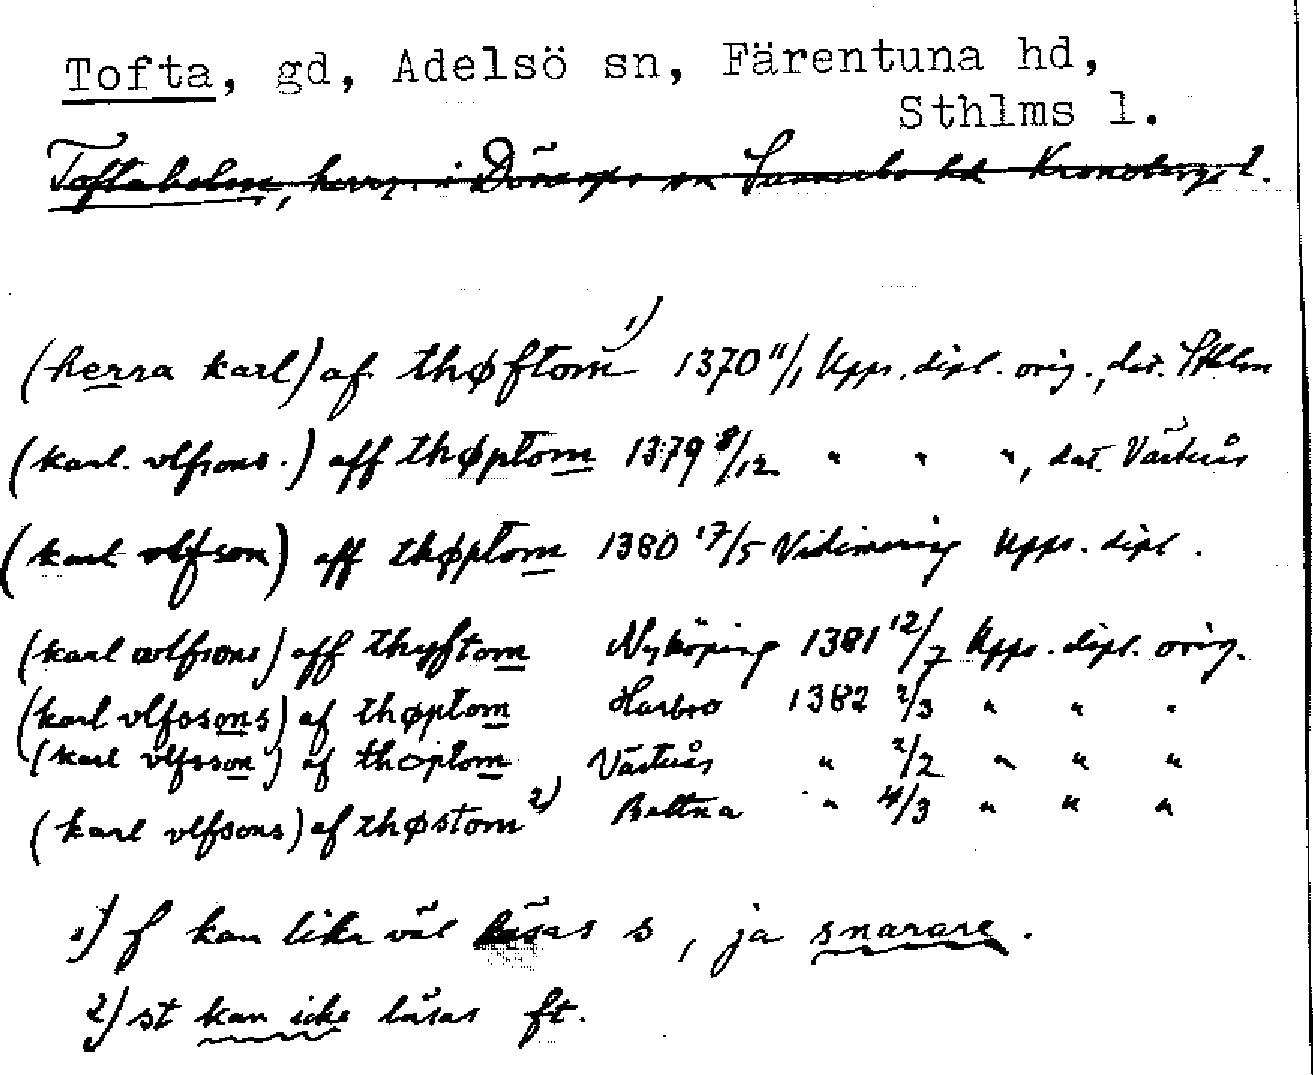 Tofta, gd, Adelsö sn, Färentuna hd,
Sthlms l.
Toftaholm, herrg. i Dörarps sn Sunnerbo hd Kronobergs l.
(herra karl) af thøftom 1) 1370 11/1 Upps. dipl. orig., dat. Sthlm
(karl. vlfsons.) aff thøptom 1379 8/12 " " ", dat. Västerås
(karl vlfson) aff thøptom 1380 17/5 Vidimering Upps. dipl.
(karl wlfsons) aff thyftom Nyköping 1381 12/7 Upps. dipl. orig.
(karl vlfssons) af thøptom Harbro 1382 2/3 " " "
(karl vlfsson) af thoptom Västerås " 2/2 " " "
(karl vlfsons) af thøstom 2) Bettna " 4/3 " " "
1) f kan lika väl läsas s, ja snarare.
2) st kan icke läsas ft.